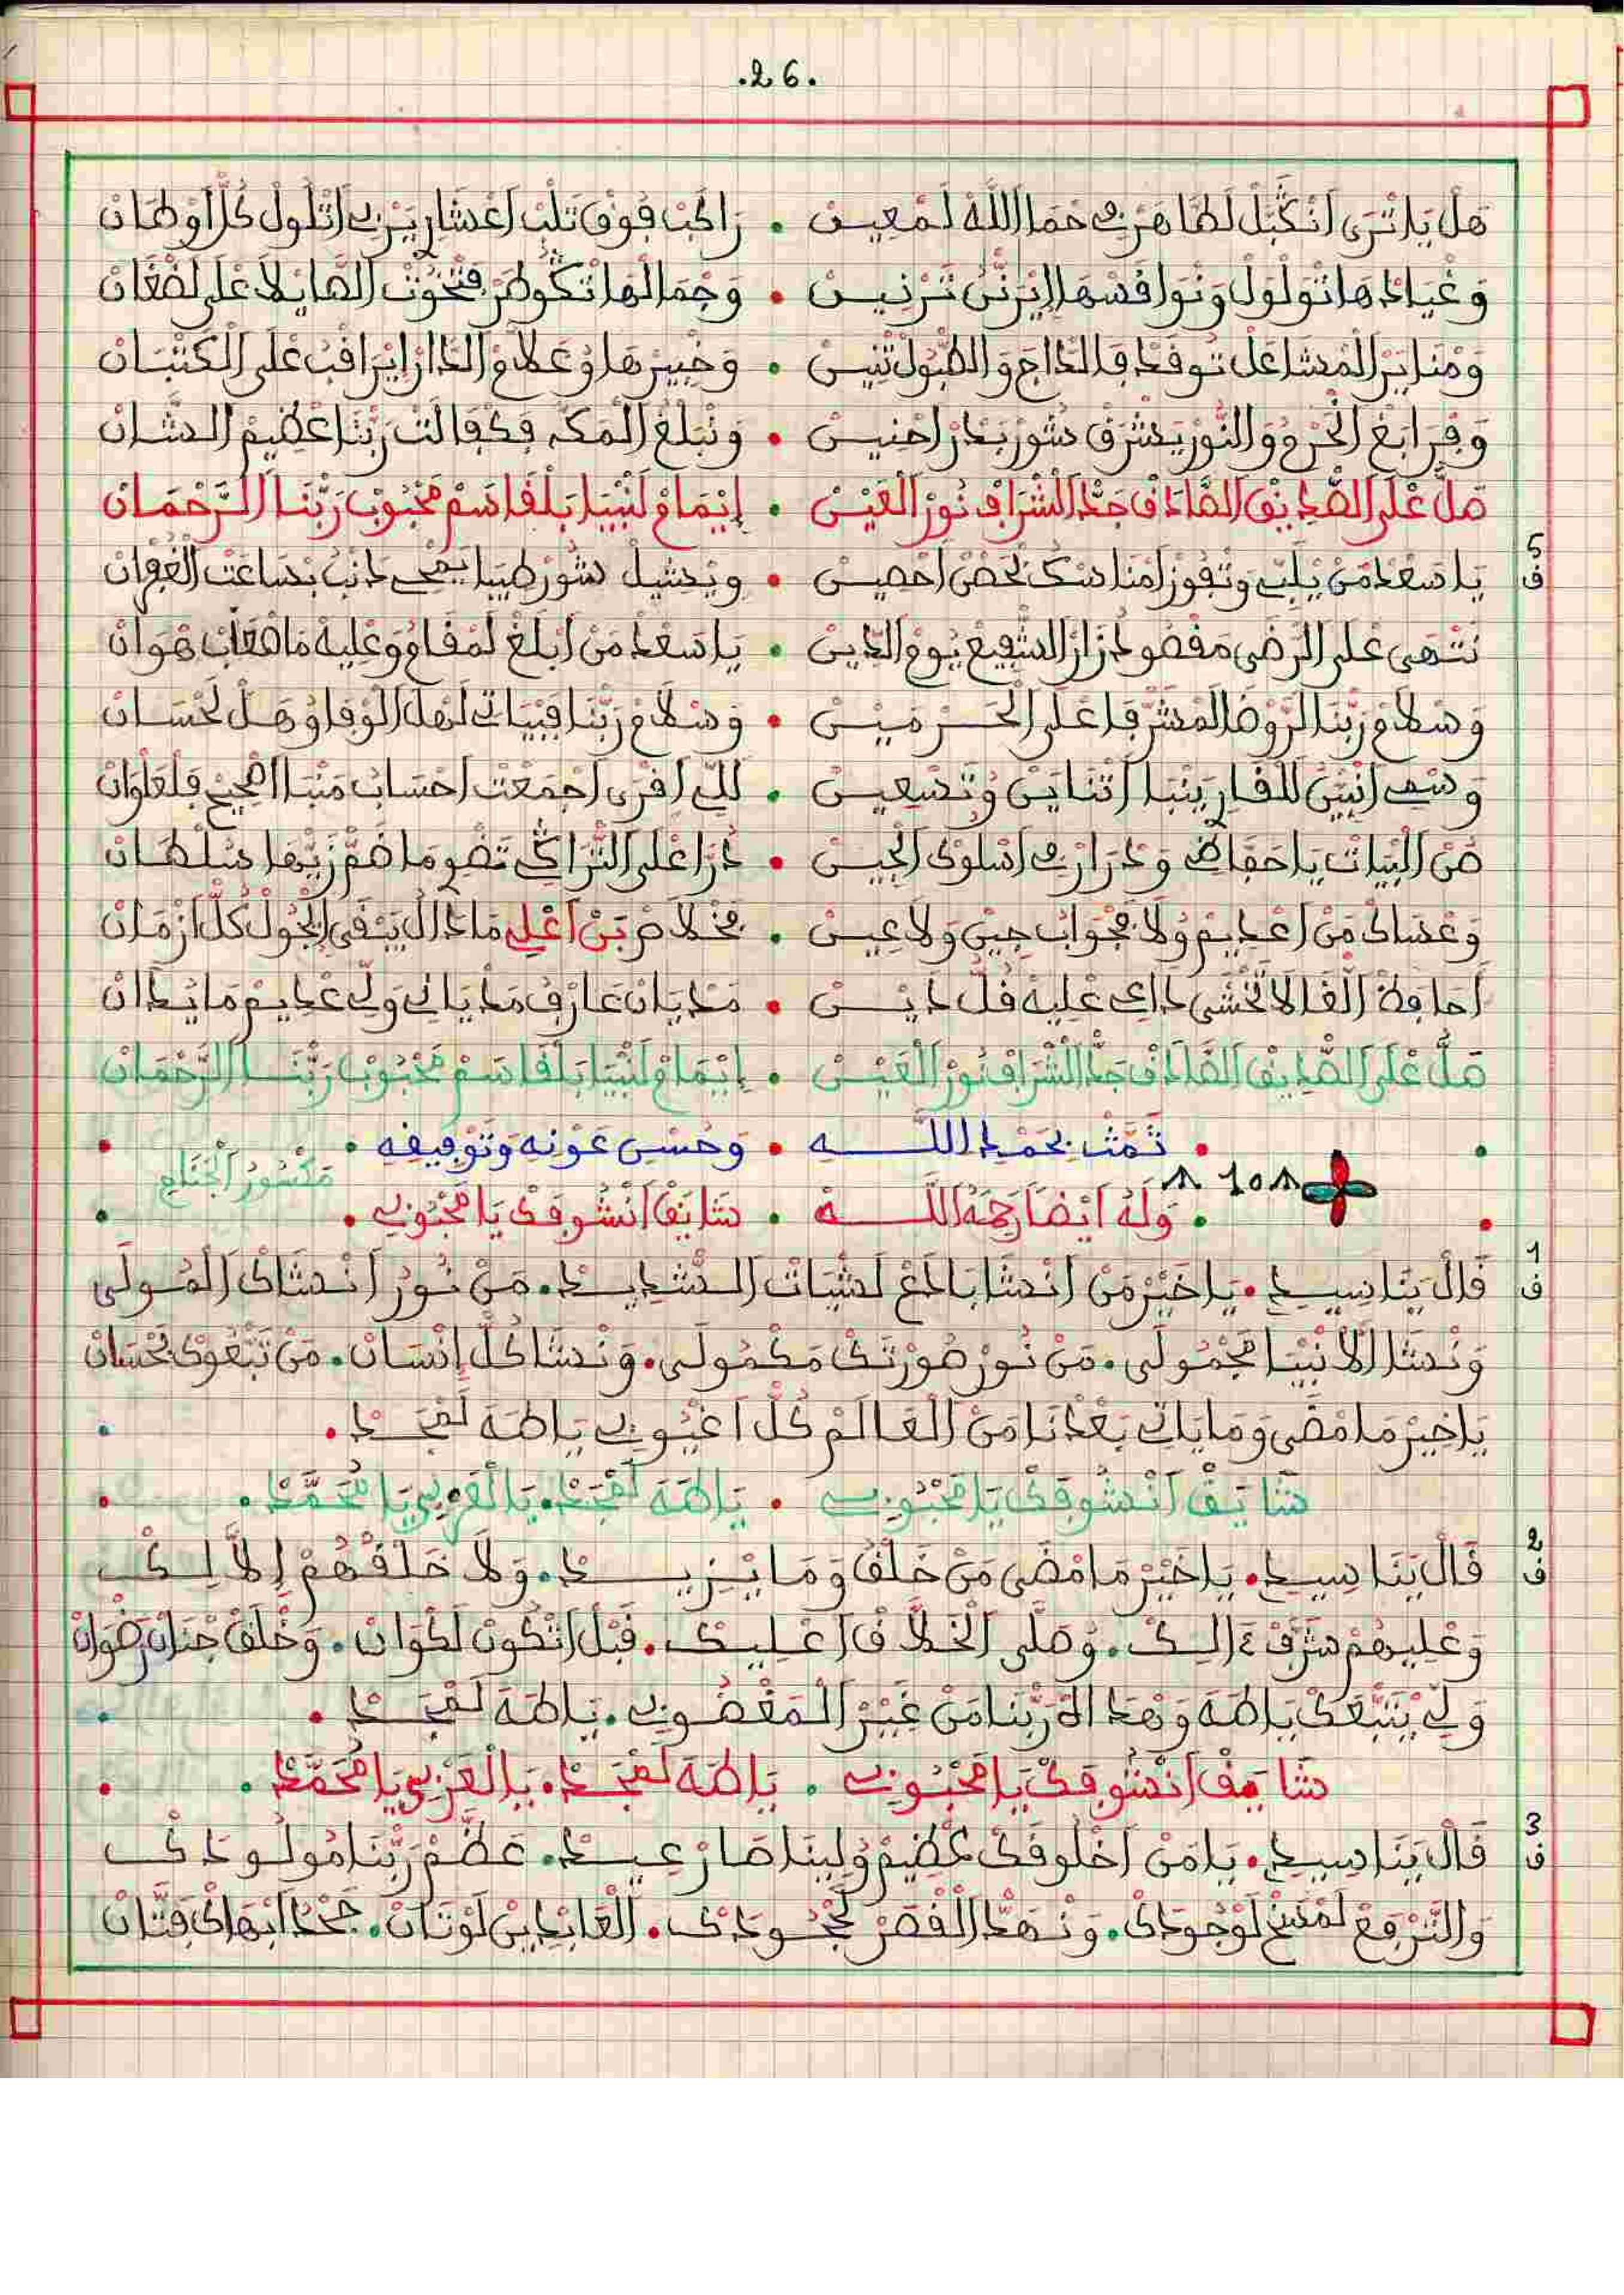 .26.
هَلْ يَا تْرَى أَنْكَبَّلْ لَطَّاهَرْ فِي حَمَا اللَّه لَمْعِينْ • رَاكَبْ فُوقْ تَلْبْ أَعْشَارِي يَرْبِي أَتْلُولْ كُلّ أَوْطَانْ
وَغْيَادْهَا تْوَلْوَلْ وَنْوَافَسْهَا إِيْرَنّْ تَرْنِينْ • وَجْمَالْهَا تْكُوطَرْ
وَمْنَايَرْ الْمْشَاعَلْ تُوقَدْ فَالدَّاجْ وَالطّْبُولْ تْنِينْ • وَخْبِيرْهَا وُعَلاَّمْ الدَّارْ إِيْرَاقَبْ عْلَى الْكَثْبَانْ
وَفْرَابَغْ الْحْرُمْ وَالنُّورْ يَشْرَقْ سُورْ بَدْرْ احْنِينْ • وَنْبَلْغْ الْمَكَّه فَكْفَالْتْ رَبّْنَا عْظِيمْ الشَّانْ
صَلّْ عْلَى الصّْدِيقْ الصَّادَقْ جَدّْ الشّْرَافْ نُورْ الْعَيْنْ • إِيْمَامْ لَنْبِيَا بَلْقَاسَمْ مَحْبُوبْ رَبّْنَا الرَّحْمَانْ
5
ف
يَا سَعْدْ مَنْ يْلَبِّي وَيْفُوزْ أَمْنَاسَكْ بَحْصْنْ أَحْصِينْ • وِيْشِيلْ سُورْ طِيبَا يَمْحِي دَنْبُ بْسَاعَتْ الْغُفْرَانْ
نَتْهَى عْلَى الرّْضَى مَقْصُودْ زَارْ الشّْفِيعْ يُومْ الدِّينْ • يَا سَعْدْ مَنْ أَبْلَغْ لَمْقَامُ وَعْلِيهْ مَا صْعَابْ هْوَانْ
وَسْلاَمْ رَبّْنَا لَلرَّوْضَا لَمْشَرّْفَا عْلَى الْحَرْمِينْ • وَسْلاَمْ رَبّْنَا فَبْيَاتِي لَهْلْ الْوْفَا وُهَلْ لَحْسَانْ
وَسْمِي أَنْبَيّْنْ لَلْقَارِي يَنْبَا أَتْنَايَنْ وُتَسْعِينْ • لَلِّي أَقْرَى أَجْمَعْتْ أَحْسَابْ مَنْبَا الصّْحِيحْ فَلْعَلْوَانْ
صُنْ الْبْيَاتْ يَا حَفَّاضِي وَدْرَارْ فِي أَسْلُوكْ لْجِينْ • دُرّْا عْلَى التّْرَاكِي تَضْوِي مَا ضَمّْ زَيّْهَا سُلْطَانْ
وَعْسَاكْ مَنْ أَعْدِيمْ وُلاَ بَجْوَابْ حِينْ وَلاَ عِينْ • مَخْلاَصْ بَنْ أَعْلِي مَادَالْ يَبْقَى إِيْجُولْ كُلّْ أَزْمَانْ
أَحَافَظْ الْغَا لاَ تَخْشَى دَاعِي عْلِيهْ قُلّْ دَيْنْ • مَدْيَانْ عَارْفُ مَدْيَانِي وَلِّي عْدِيمْ مَا يْدَانْ
صَلّْ عْلَى الصّْدِيقْ الصَّادَقْ جَدّْ الشّْرَافْ نُورْ الْعَيْنْ • إِيْمَامْ لَنْبِيَا بَلْقَاسَمْ مَحْبُوبْ رَبّْنَا الرَّحْمَانْ
• تَمَّتْ بِحَمْدِ اللَّه • وَحُسْنِ عَوْنِهِ وَتَوْفِيقِهِ •
مَكْسُورُ الْجَنَاحِ
10
• وَلَهُ أَيْضًا رَحِمَهُ اللَّه • شَايَقْ أَنْشُوفَكْ يَا مَحْبُوبِي •
1
ف
قَالْ يَنَا سِيدِي • يَا خَيْرْ مَنْ أَنْشَا بَادَعْ لَشْيَاتْ الشّْدِيدْ • مَنْ نُورُ أَنْشَاكْ الْمُولَى
وَنْشَا الأَنْبِيَا مَجْمُولَى • مَنْ نُورْ صُورْتَكْ مَكْمُولَى • وَنْشَا كُلّْ إِنْسَانْ • مَنْ تَبْعُوكْ بَحْسَانْ
يَا خِيرْ مَا مْضَى وَمَا يَاتِي بَعْدْنَا مَنْ الْعَالَمْ كُلّْ أَغْيُوبِي يَا طَهَ لَمْجَدْ •
شَايَقْ أَنْشُوفَكْ يَا مَحْبُوبِي • يَا طَهَ لَمْجَدْ • يَا لْعَرْبِي يَا مُحَمَّدْ •
2
ف
قَالْ يَنَا سِيدِي • يَا خَيْرْ مَا مْضَى مَنْ خَلْقُ وَمَا يْزِيدْ • وَلاَ خَلَقْهُمْ إِلاَّ لِيكْ
وَعْلِيهُمْ شَرَّفْ ءَالِكْ • وُصَلَّى الْخَلاَّقْ أَعْلِيكْ • قَبْلْ أَتْكُونْ لَكْوَانْ • وَخْلَقْ جْنَانْ رَضْوَانْ
وَلِّي يْتَبّْعَكْ يَا طَهَ وَهْدَاهْ رَبّْنَا مَنْ غَيْرْ الْمَغْضُوبِي • يَا طَهَ لَمْجَدْ •
شَايَقْ أَنْشُوفَكْ يَا مَحْبُوبِي • يَا طَهَ لَمْجَدْ • يَا لْعَرْبِي يَا مُحَمَّدْ •
3
ف
قَالْ يَنَا سِيدِي • يَا مَنْ أَخْلُوقَكْ عْظِيمْ وُلِينَا صَارْ عِيدْ • عَظَّمْ رَبّْنَا مُولُودَكْ
وَالتَّرْفِعْ لَمْسَخْ لَوْجُودَكْ • وَنْهَدّْ الْقْصَرْ لَجْحُودَكْ • الْعَابْدِينْ لَوْتَانْ • جَحْدُ أَبْهَاكْ فَتَّانْ